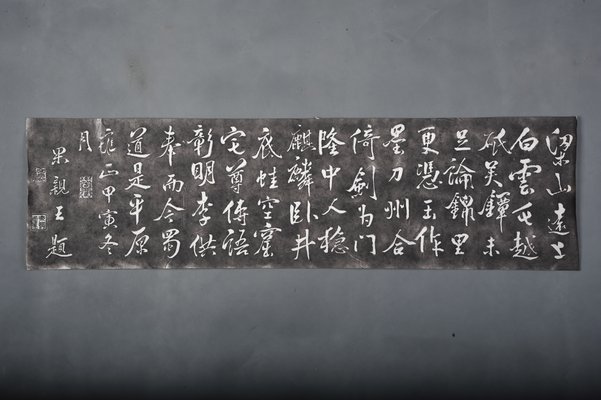 梁山遠上
白雲屯越
砥吳鐔未
足論錦里
更凴玉作
壘刀州合
倚劍為門
隆中人穩
麒麟卧井
底蛙空窟
宅尊傳語
彰明李供
奉而今蜀
道是平原
雍正甲寅冬
月
果親王題